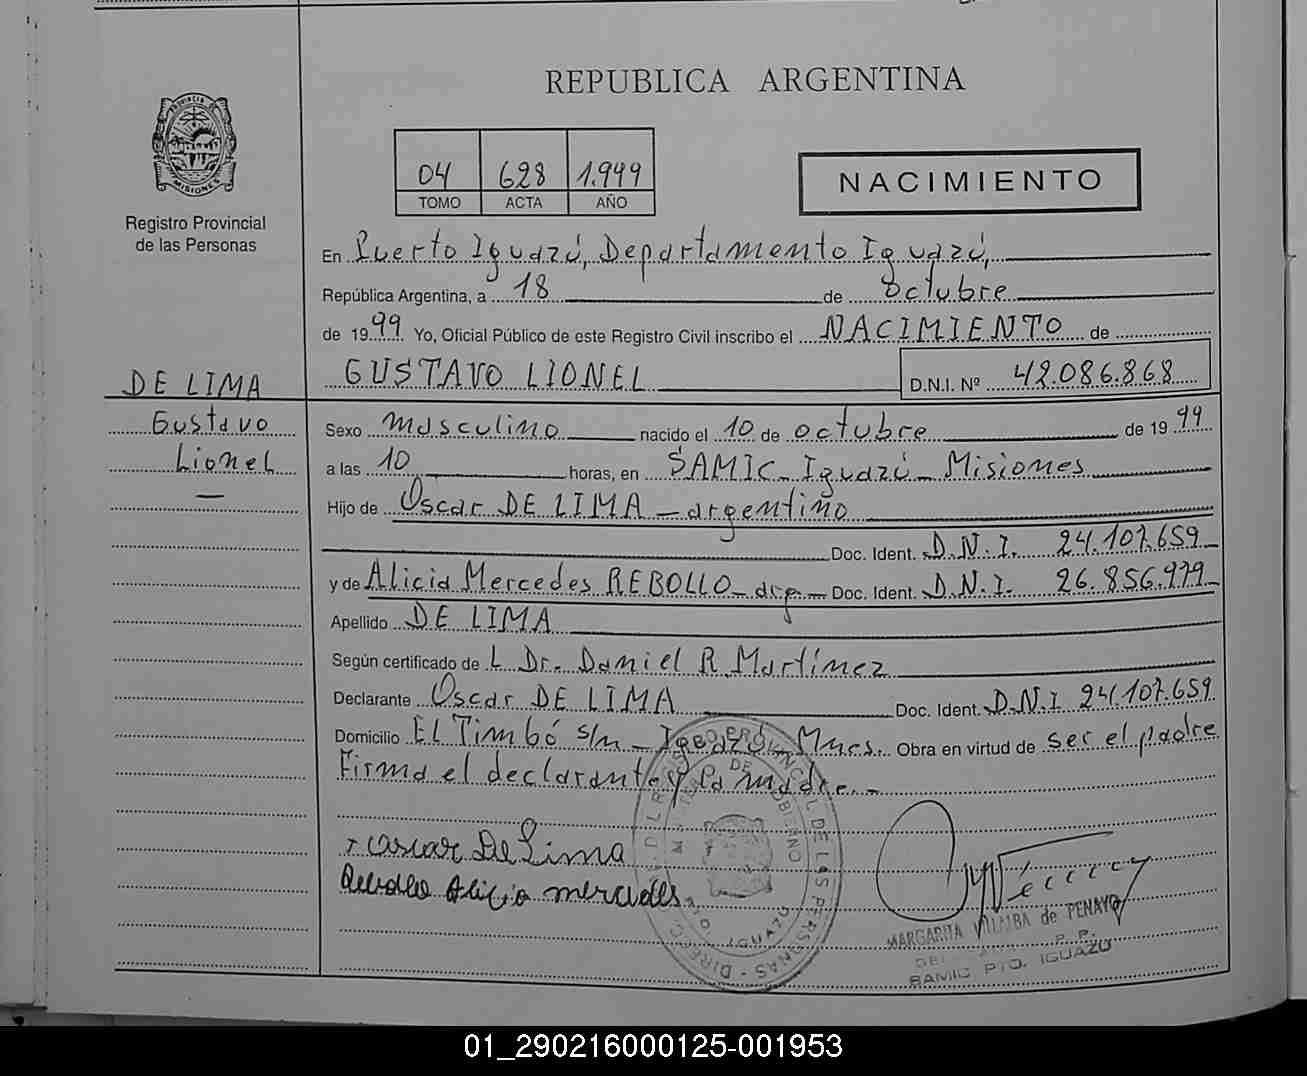 REPUBLICA ARGENTINA
PROVINCIA DE MISIONES
Registro Provincial
de las Personas
04 628 1.999
TOMO ACTA AÑO
NACIMIENTO
En Puerto Iguazú, Departamento Iguazú,
República Argentina, a 18 de octubre
de 1999 Yo, Oficial Público de este Registro Civil inscribo el NACIMIENTO de
GUSTAVO LIONEL D.N.I. Nº 42.086.868
DE LIMA
Gustavo
Lionel
Sexo masculino nacido el 10 de octubre de 1999
a las 10 horas, en SAMIC - Iguazú - Misiones
Hijo de Oscar DE LIMA - argentino
Doc. Ident. D.N.I. 24.107.659
y de Alicia Mercedes REBOLLO - arg - Doc. Ident. D.N.I. 26.856.979
Apellido DE LIMA
Según certificado de L Dr. Daniel R. Martínez
Declarante Oscar DE LIMA Doc. Ident. D.N.I 24.107.659
Domicilio EL Timbó s/n - Iguazú - Mnes. Obra en virtud de ser el padre
Firma el declarante y la madre. -
Oscar De Lima
Rebollo Alicia mercedes
MARGARITA VILLALBA de PENAYO
R. P.
SAMIC PTO. IGUAZU
01_290216000125-001953